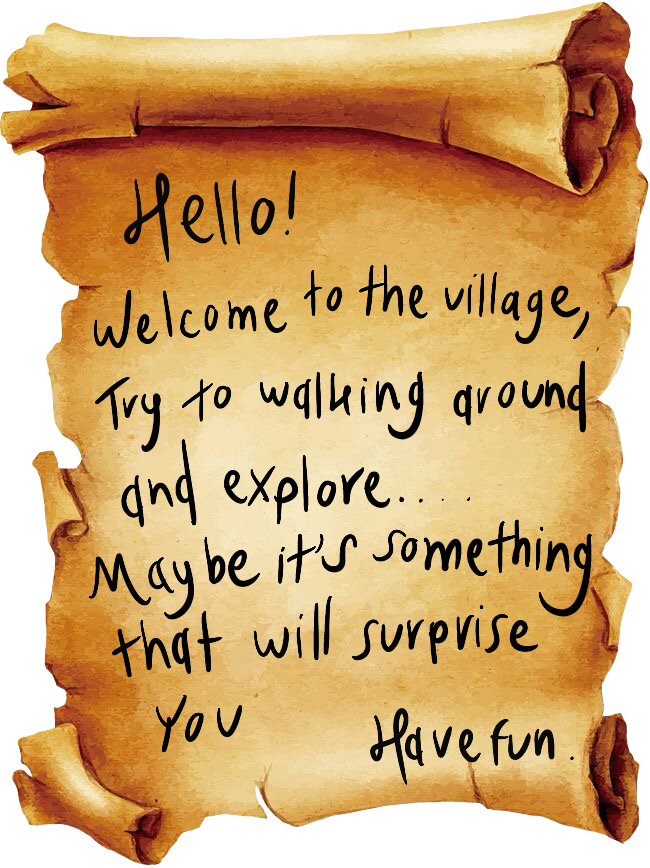 Hello!
Welcome to the village,
Try to walking around
and explore....
Maybe it's something
that will surprise
You
Have fun.